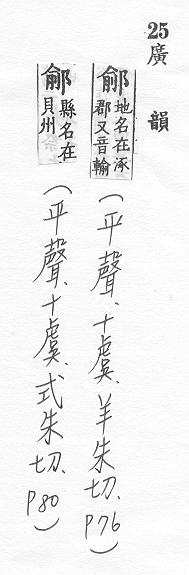 25廣 韻
鄃地名在涿郡又音輸（平聲、十虞、羊朱切、P76）
鄃縣名在貝州（平聲、十虞、式朱切、P80）